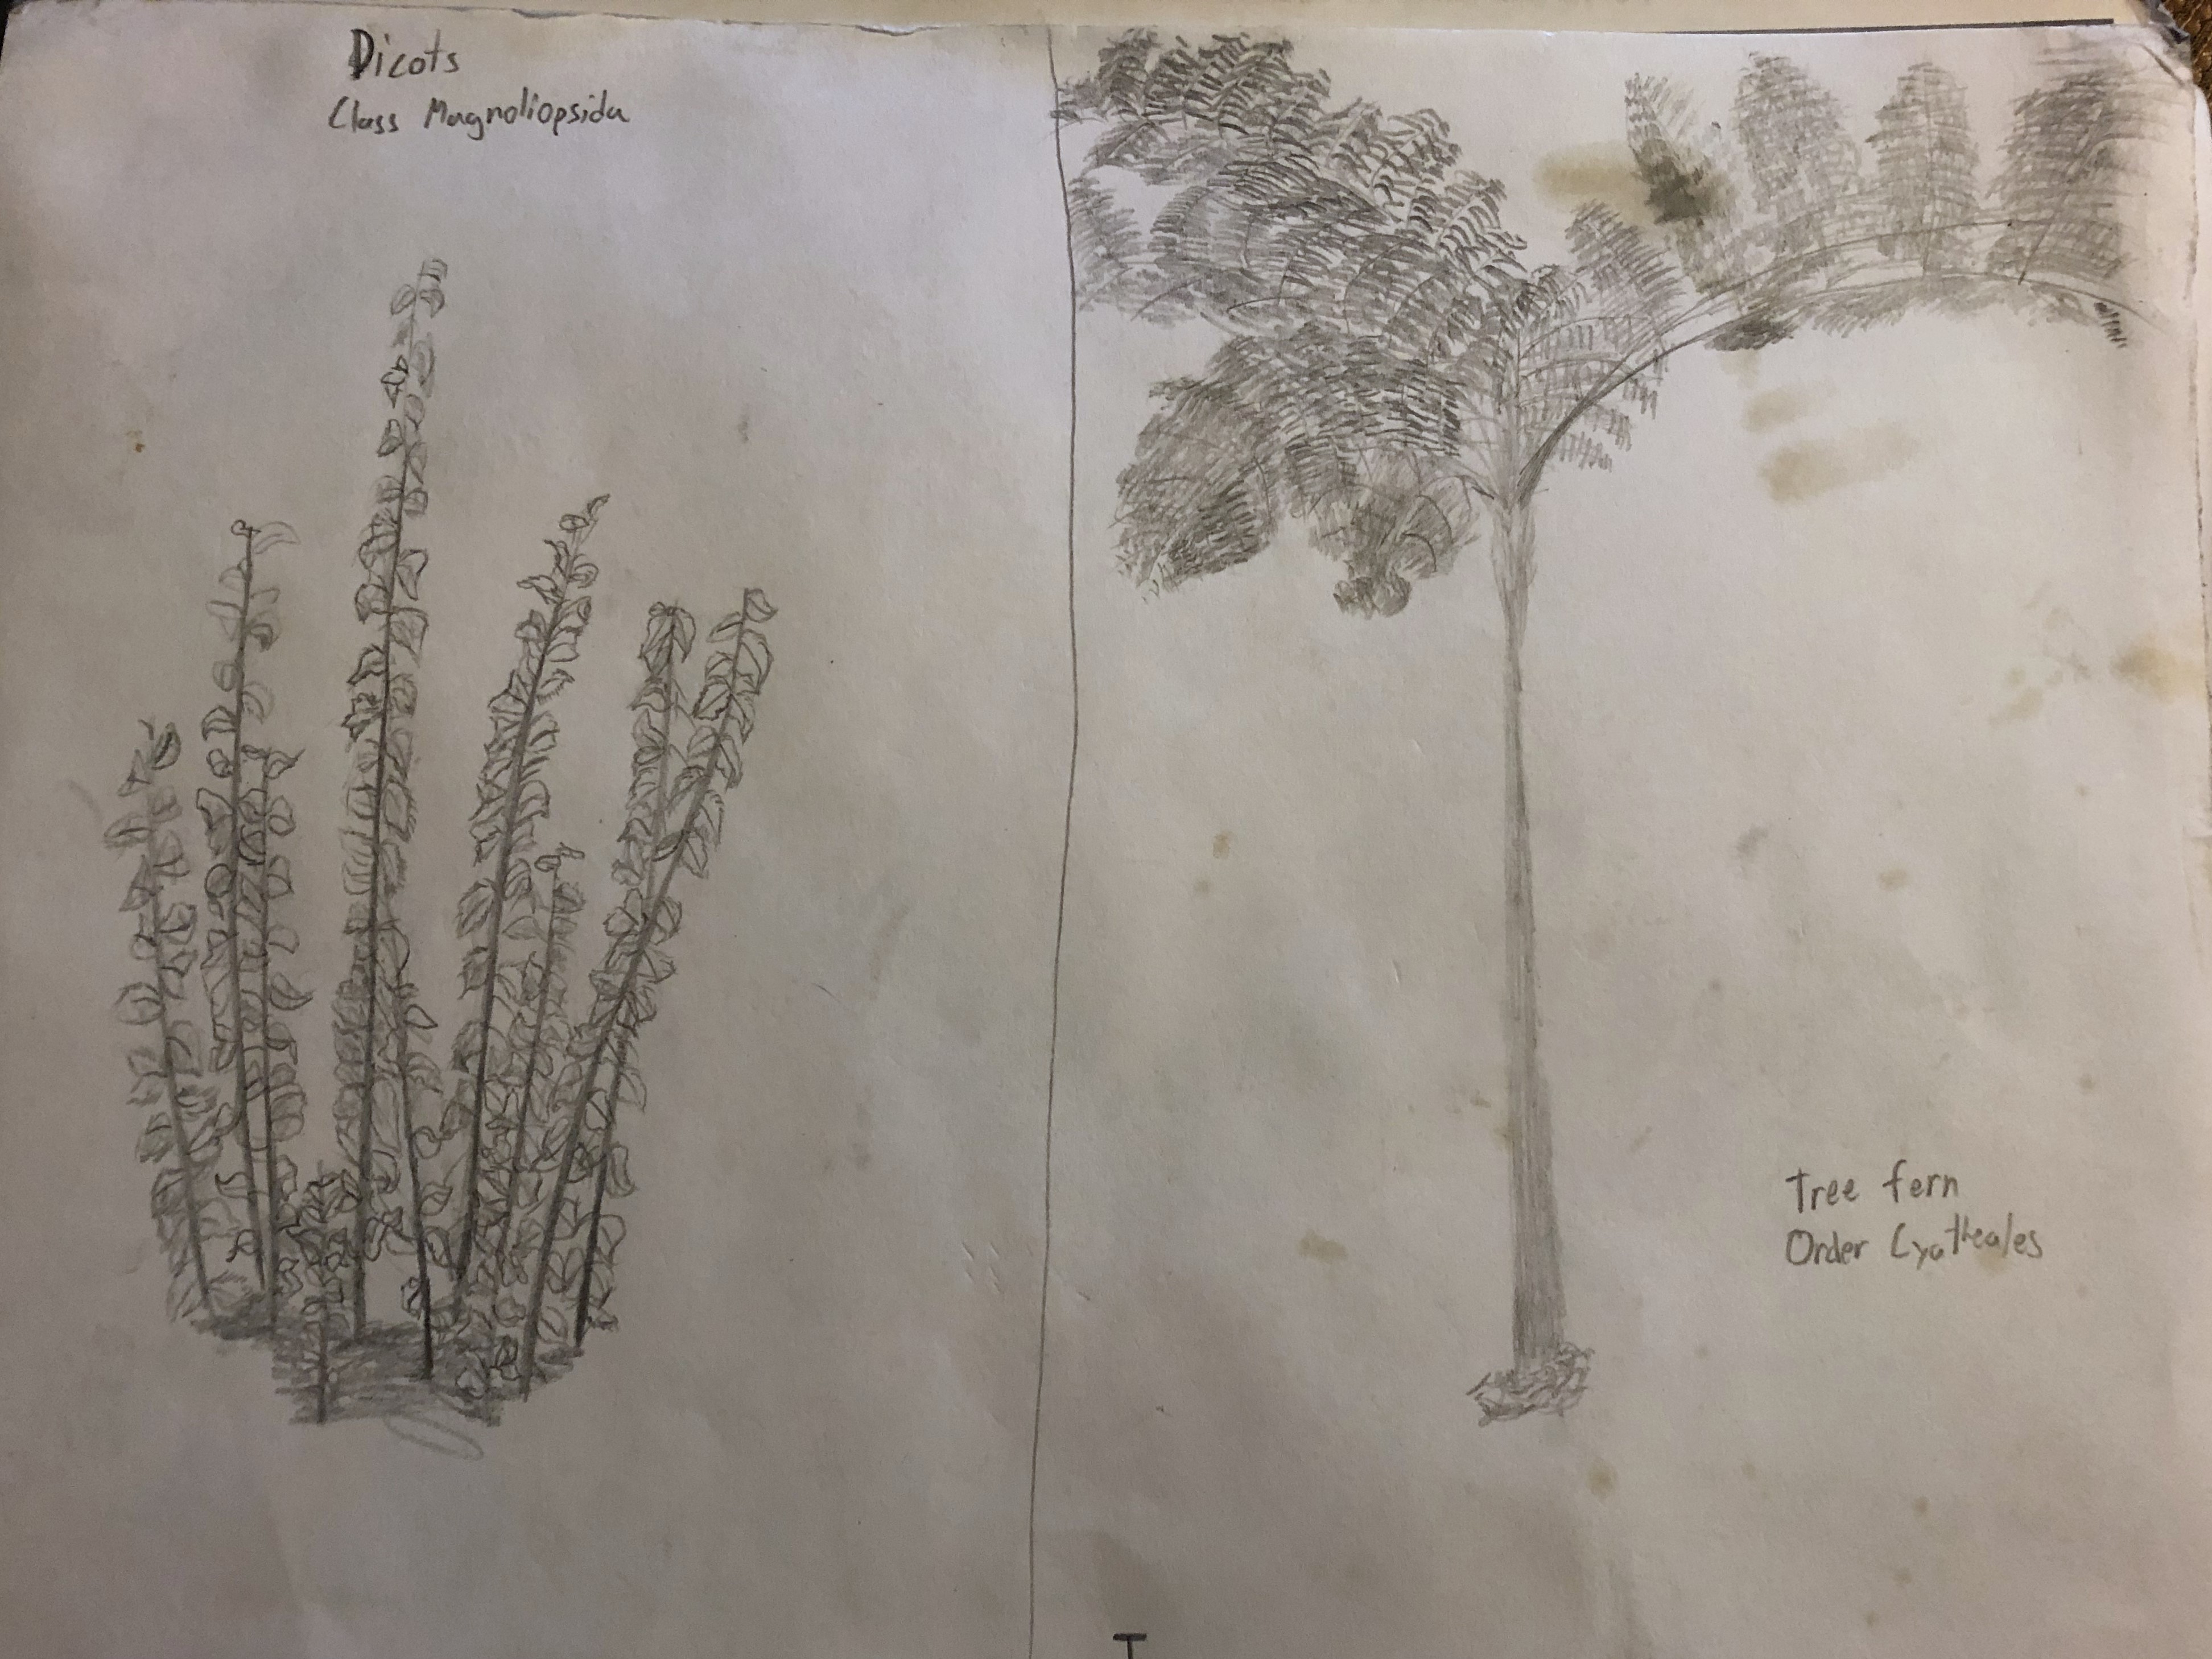 Dicots
Class Magnoliopsida
Tree fern
Order Cyatheales